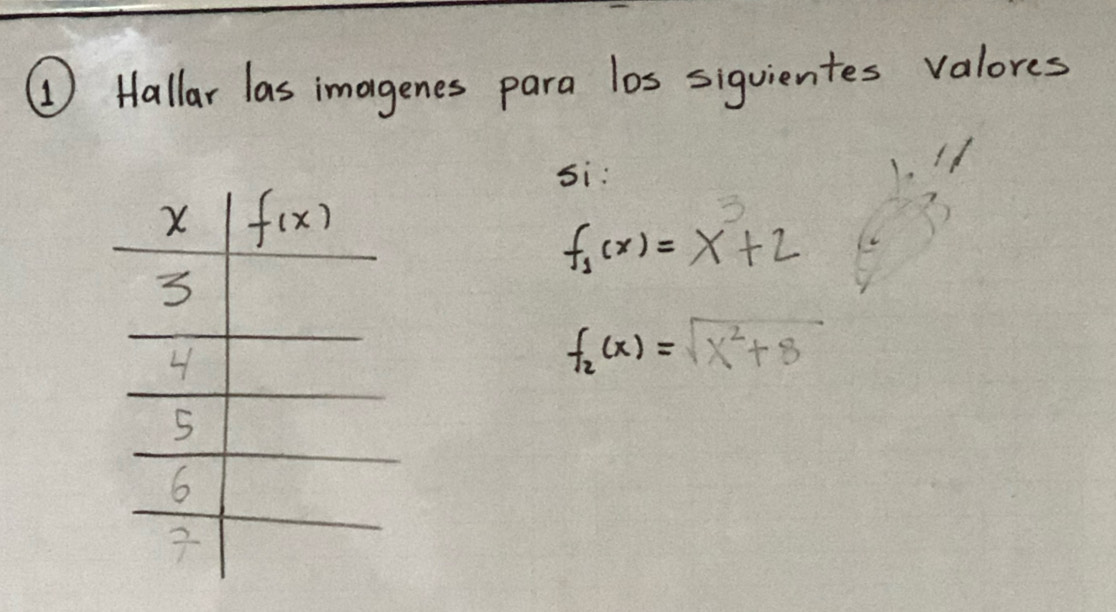 ① Hallar las imagenes para los siguientes valores
si:
x | f(x)
3
4
5
6
7
f₁(x) = x³+2
f₂(x) = √(x²+8)